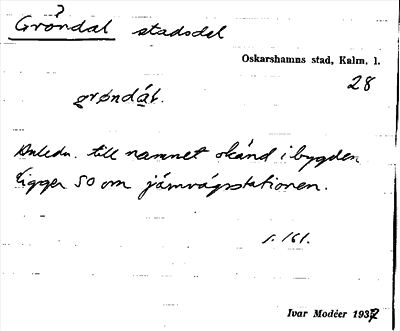 Gröndal stadsdel
Oskarshamns stad, Kalm. l.
28
grøndál.
Anledn. till namnet okänd i bygden
Ligger SO om järnvägsstationen.
s. 161.
Ivar Modéer 1937